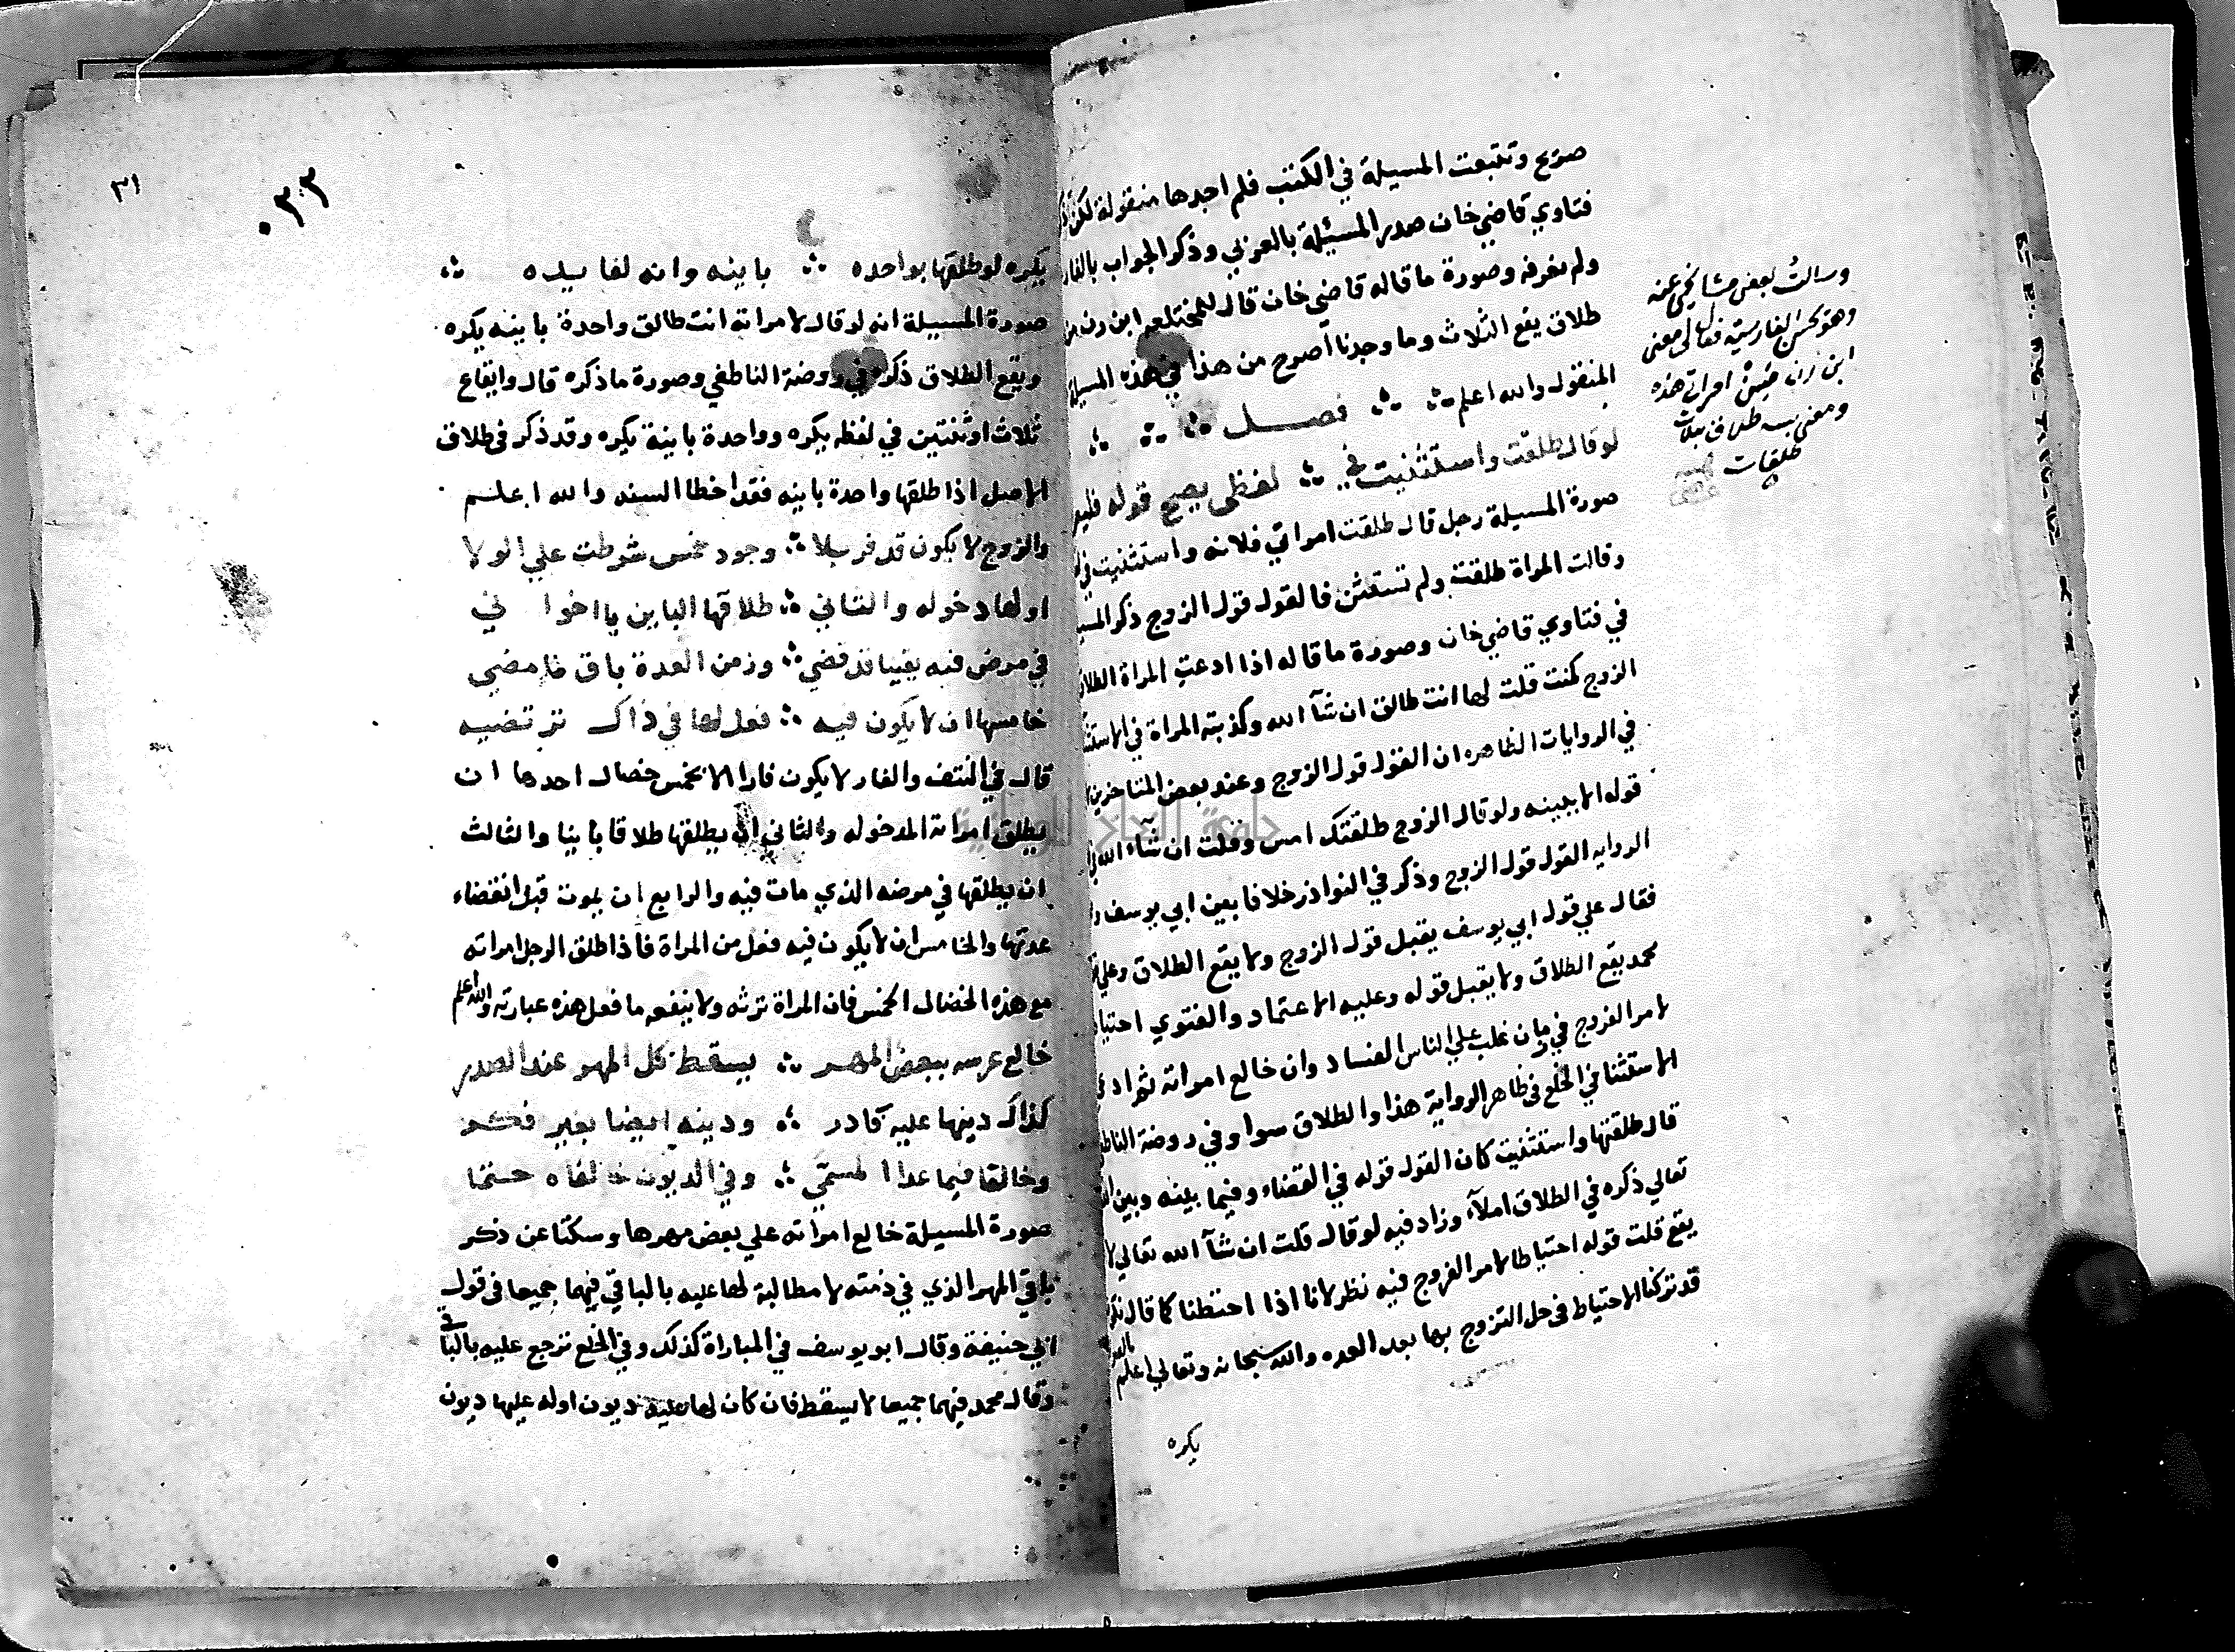 صريح وتتبعت المسيلة في الكتب فلم اجدها منقولة لكن
فتاوي قاضي خان صدر المسئلة بالعربي وذكر الجواب بالفار
ولم نعرفه وصورة ما قاله قاضي خان قال للمختلعه ابن زن من
طلاق يقع الثلاث وما وجدنا اصرح من هذا في هذه المسيلة
المنقول والله اعلم ∴ ∴ فصل ∴ ∴ ∴
لو قال طلقت واستثنيت في ∴ لفظي يصح قوله
صورة المسيلة رجل قال طلقت امراتي فلانه واستثنيت في
وقالت المراة طلقت ولم تستثن فالقول قول الزوج ذكر
في فتاوي قاضي خان وصورة ما قاله اذا ادعت المراة الطلاق
الزوج كنت قلت لها انت طالق ان شآ الله وكذبته المراة في
في الروايات الظاهره ان القول قول الزوج وعند بعض المتاخرين
قوله الا ببينه ولو قال الزوج طلقتك امس وقلت ان شآء الله
الروايه القول قول الزوج وذكر في النوادر خلافا بين ابي يوسف
فقال علي قول ابي يوسف يقبل قول الزوج ولا يقع الطلاق وعلي
محمد يقع الطلاق ولا يقبل قوله وعليه الاعتماد والفتوي احتيا
لامر الفروج في زمان غلب علي الناس الفساد وان خالع امراته ثم ادعي
الاستثنا في الخلع في ظاهر الرواية هذا والطلاق سوا وفي روضة الناطفي
قال طلقتها واستثنيت كان القول قوله في القضاء وفيما بينه وبين
تعالي ذكره في الطلاق املآء وزاد فيه لو قال قلت ان شآ الله تعالي لا
يقع قلت قوله احتياطا لامر الفروج فيه نظر لانا اذا احتطنا كما قال
قد تركنا الاحتياط في حل التزوج بها بعد العده والله سبحانه وتعالي اعلم
يكره
وسالت بعض مشايخي عنه
وهو يحسن الفارسية فقال لي معنى
ابن زن من امراتي هذه
ومعنى بسه طلاق بثلاث
طلقات
٣١
٠٣٢
يكره لو طلقها بواحده ∴ باينه وانه لفايده ∴
صورة المسيلة انه لو قال لامراته انت طالق واحدة باينه يكره
ويقع الطلاق ذكره في روضة الناطفي وصورة ما ذكره قال وايقاع
ثلاث او ثنتين في لفظه يكره وواحدة باينة يكره وقد ذكر في طلاق
الاصل اذا طلقها واحدة باينه فقد اخطا السنه والله اعلم
والزوج لا يكون قد فر بلا ∴ وجود خمس شرطت علي الولا
اولها دخوله والثاني ∴ طلاقها الباين يا اخواني
في مرض فيه يقينا قد قضي ∴ وزمن العدة باق ما مضى
خامسها ان لا يكون فيه ∴ فعل لها في ذاك ترتضيه
قال في النتف والفار لا يكون فارا الا بخمس خصال احدها ان
يطلق امراته المدخوله والثاني ان يطلقها طلاقا باينا والثالث
ان يطلقها في مرضه الذي مات فيه والرابع ان يموت قبل انقضاء
عدتها والخامس ان لا يكون فيه فعل من المراة فاذا طلق الرجل امراته
مع هذه الخصال الخمس فان المراة ترثه ولا ينفعه ما فعل هذه عبارته والله اعلم
خالع عرسه ببعض المهر ∴ يسقط كل المهر عند الصدر
كذاك دينها عليه قادر ∴ ودينه ايضا بغير
وخالفا فيما عدا المسمي ∴ وفي الديون خالفاه حتما
صورة المسيلة خالع امراته علي بعض مهرها وسكتا عن ذكر
باقي المهر الذي في ذمته لا مطالبة لها عليه بالباقي فيهما جميعا في قول
ابي حنيفة وقال ابو يوسف في المباراة كذلك وفي الخلع ترجع عليه بالباقي
وقال محمد فيهما جميعا لا يسقط فان كان لها عليه ديون او له عليها ديون